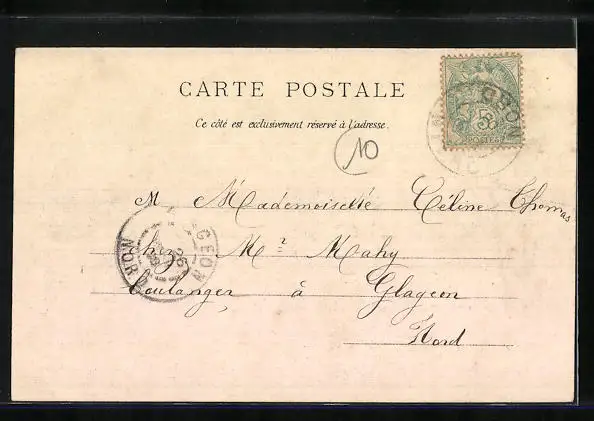 CARTE POSTALE
Ce côté est exclusivement réservé à l'adresse.
10
M, Mademoiselle Céline Thomas
chez Mr Mahy
Boulanger à Glageon
Nord
GLAGEON
NORD
5c
POSTES
NORD